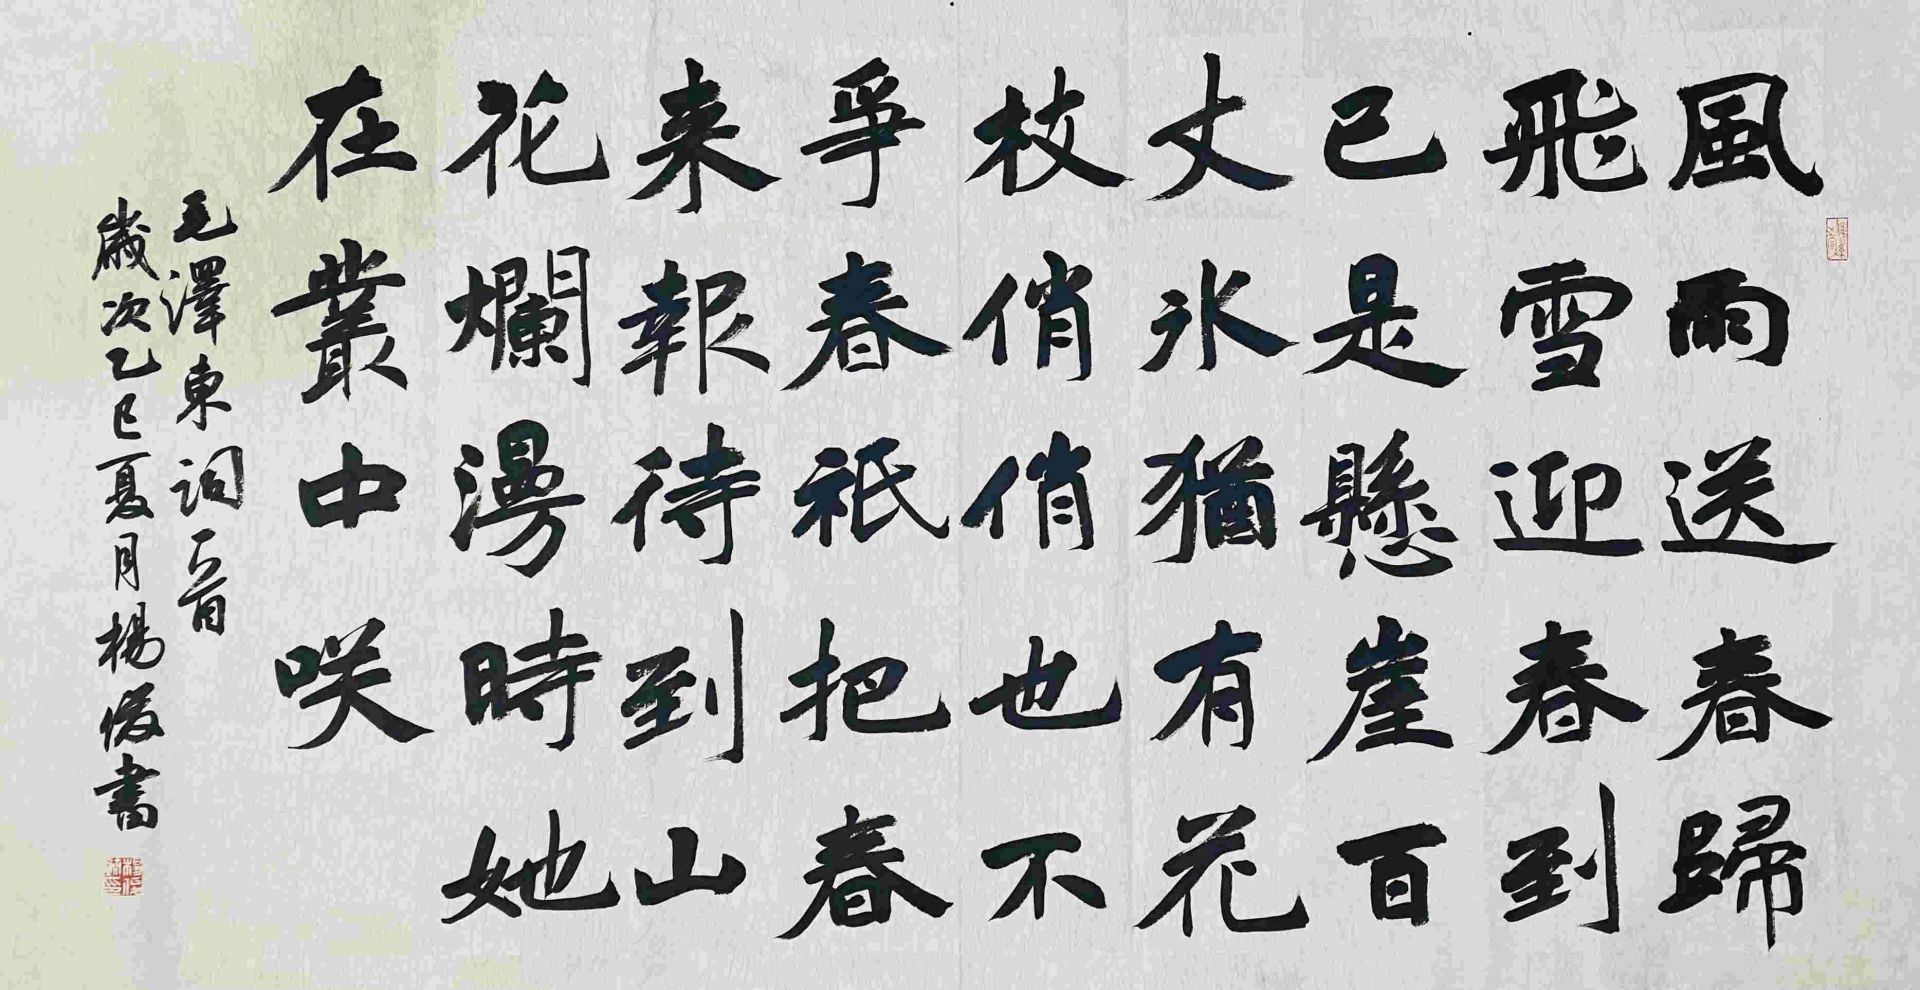 風雨送春歸
飛雪迎春到
已是懸崖百
丈氷猶有花
枝俏俏也不
爭春祇把春
来報待到山
花爛漫時她
在叢中咲
毛澤東詞一首
歲次乙巳夏月楊俊書